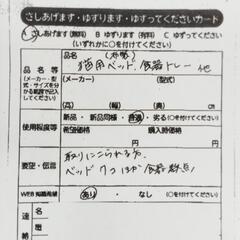 さしあげます・ゆずります・ゆずってくださいカード
A さしあげます(無料) B ゆずります(有料) C ゆずってください
(いずれかに○を付けてください)
品名等
(メーカー・型式・サイズ等が分かる範囲で記入してください)
(品名)
猫用ベッド、食器トレー 他
(メーカー) (型式)
(高) (幅) (奥)
使用程度等
新品・新品同様・普通・劣る(○を付けてください)
希望価格 購入時価格
円 円
要望・伝言
取りにこられる方
ベッド 7つほど 食器 数点
WEB掲載希望
あり・なし (○を付けてください)
連
絡